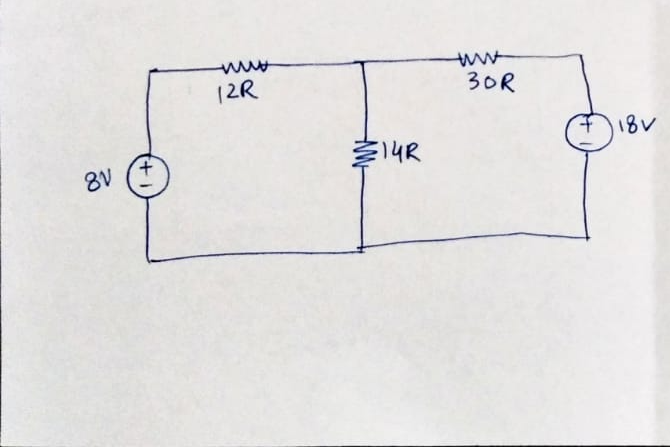 12R
30R
18V
14R
8V